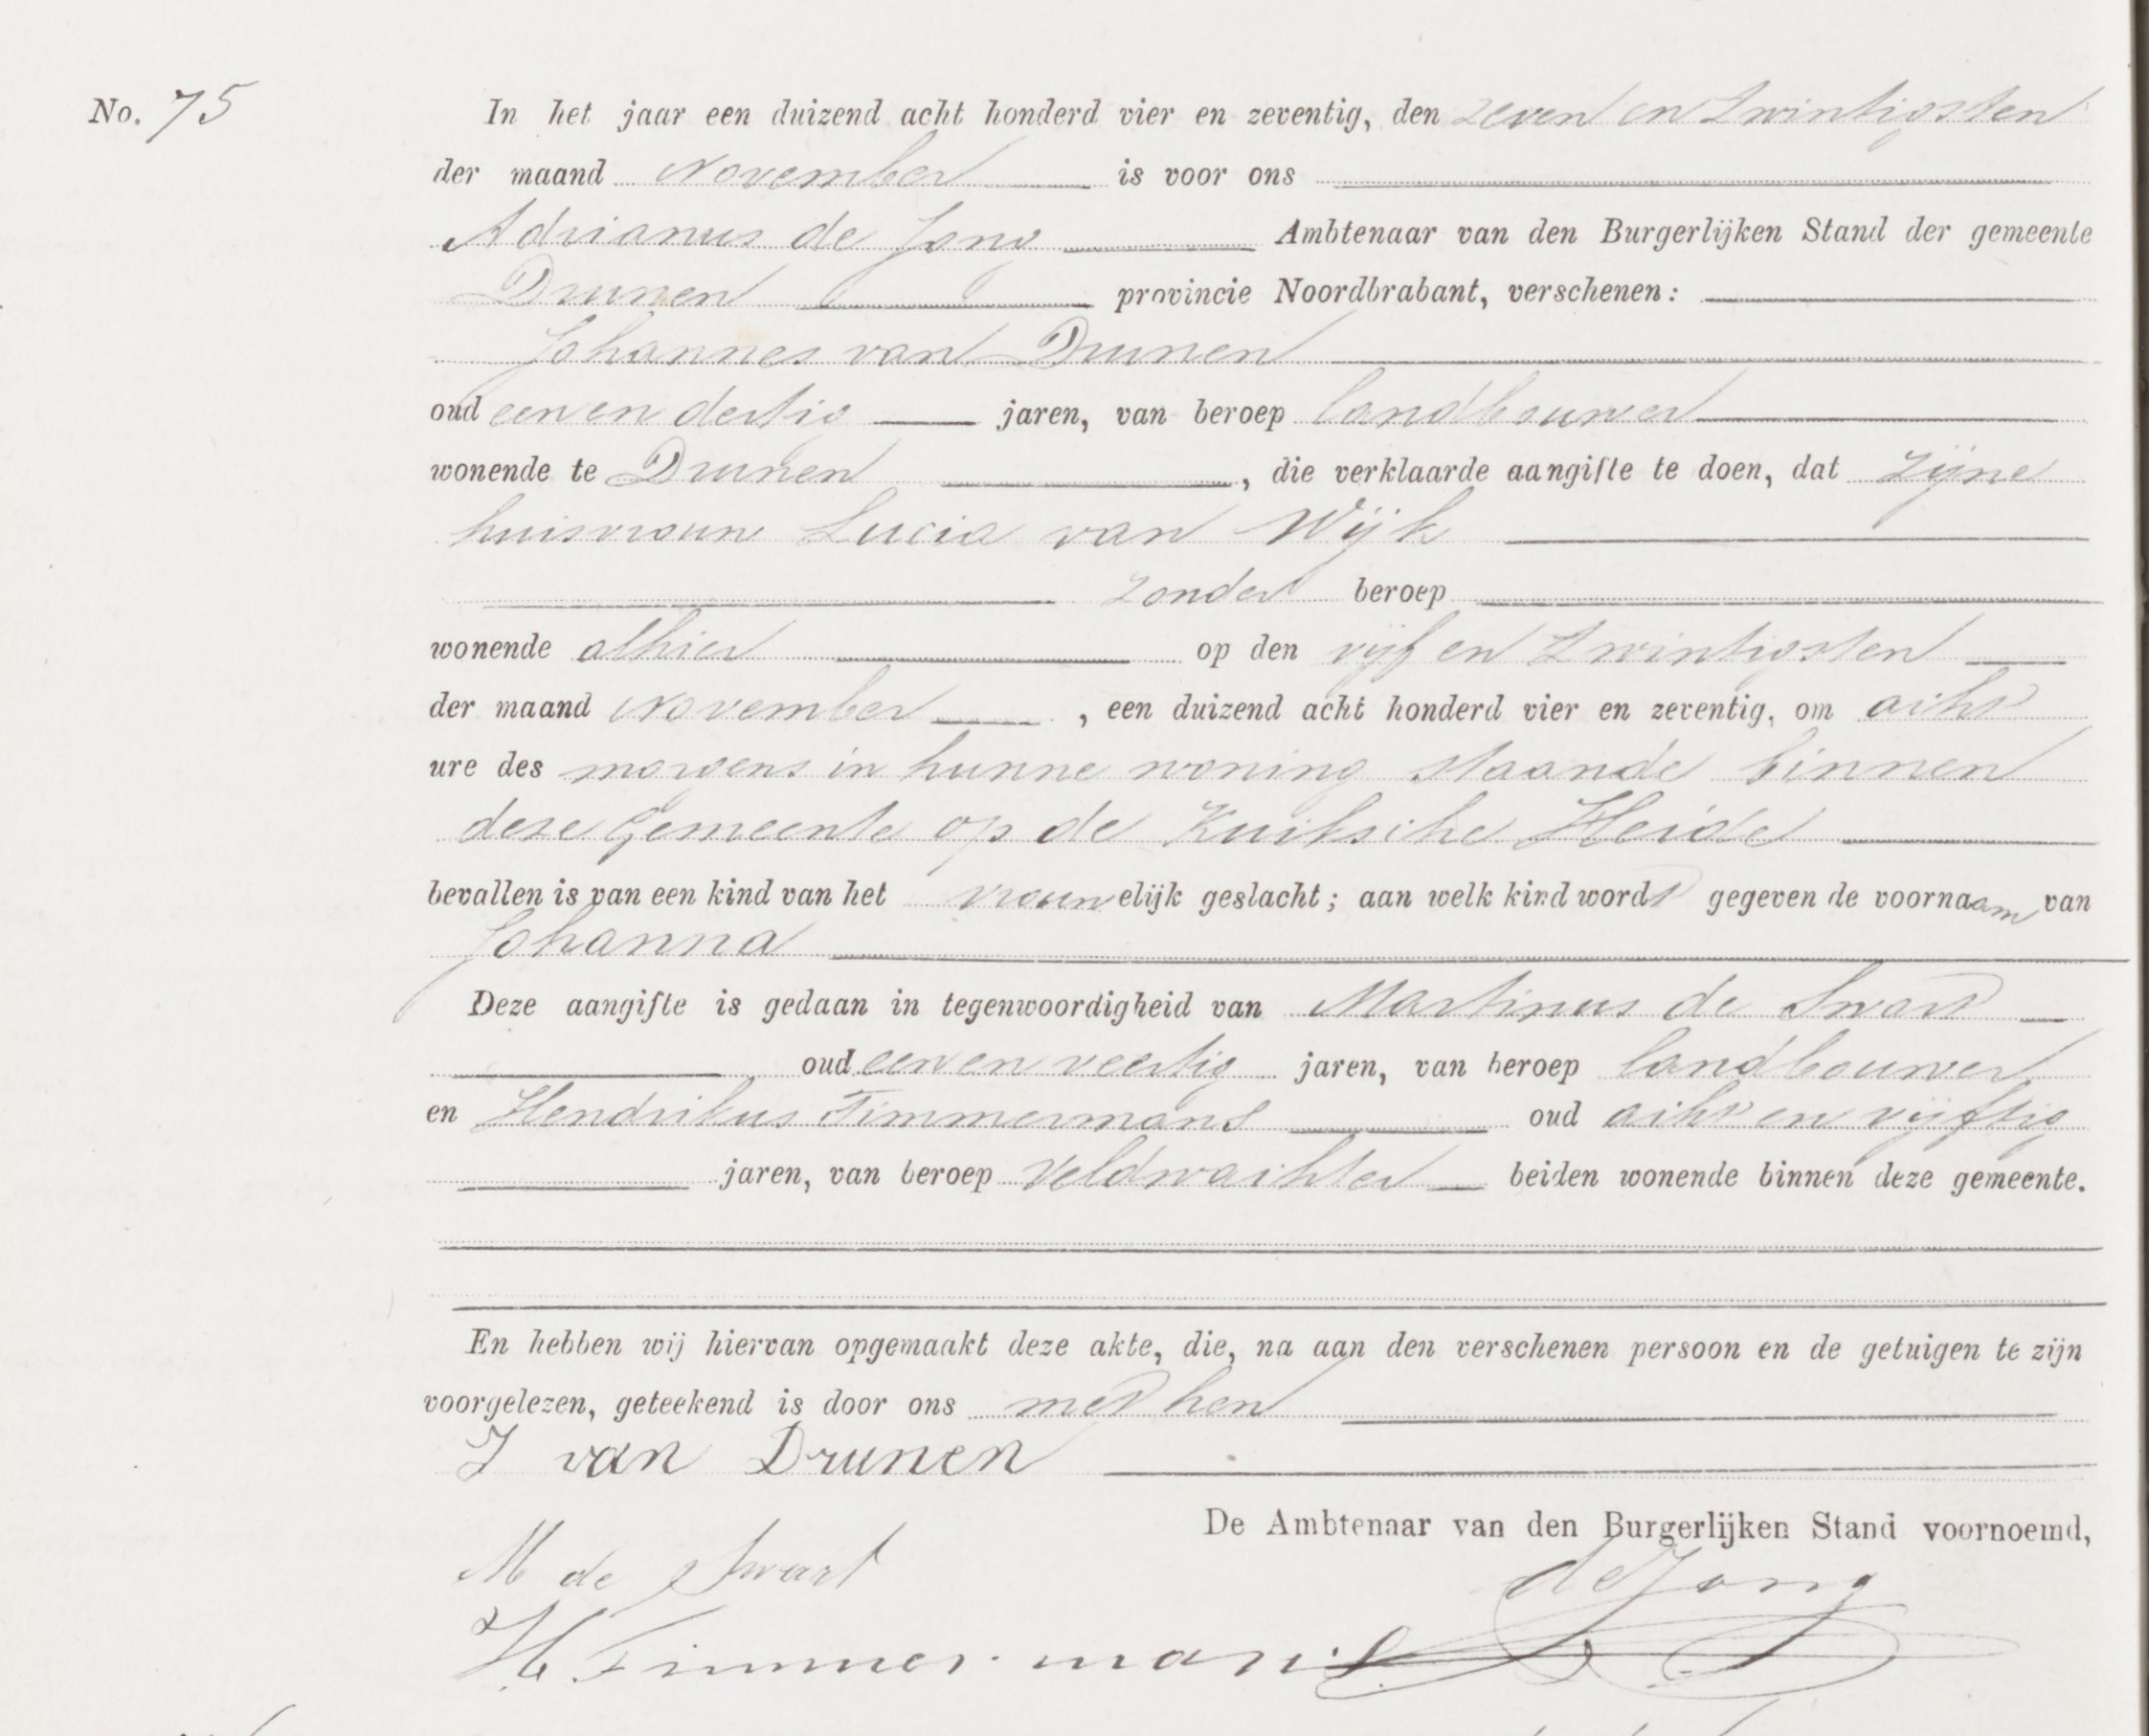 No. 75
In het jaar een duizend acht honderd vier en zeventig, den zeven en twintigsten
der maand November is voor ons
Adrianus de Jong Ambtenaar van den Burgerlijken Stand der gemeente
Drunen provincie Noordbrabant, verschenen:
Johannes van Drunen
oud een en dertig jaren, van beroep landbouwer
wonende te Drunen, die verklaarde aangifte te doen, dat zijne
huisvrouw Lucia van Wijk
zonder beroep
wonende alhier op den vijf en twintigsten
der maand November, een duizend acht honderd vier en zeventig, om acht
ure des morgens in hunne woning staande binnen
deze Gemeente op de Kuiksche Heide
bevallen is van een kind van het vrouwelijk geslacht; aan welk kind wordt gegeven de voornaam van
Johanna
Deze aangifte is gedaan in tegenwoordigheid van Martinus de Swart
oud een en veertig jaren, van beroep landbouwer
en Hendrikus Timmermans oud acht en vijftig
jaren, van beroep Veldwachter beiden wonende binnen deze gemeente.
En hebben wij hiervan opgemaakt deze akte, die, na aan den verschenen persoon en de getuigen te zijn
voorgelezen, geteekend is door ons met hen
J van Drunen
De Ambtenaar van den Burgerlijken Stand voornoemd,
M de Swart
de Jong
H. Timmermans